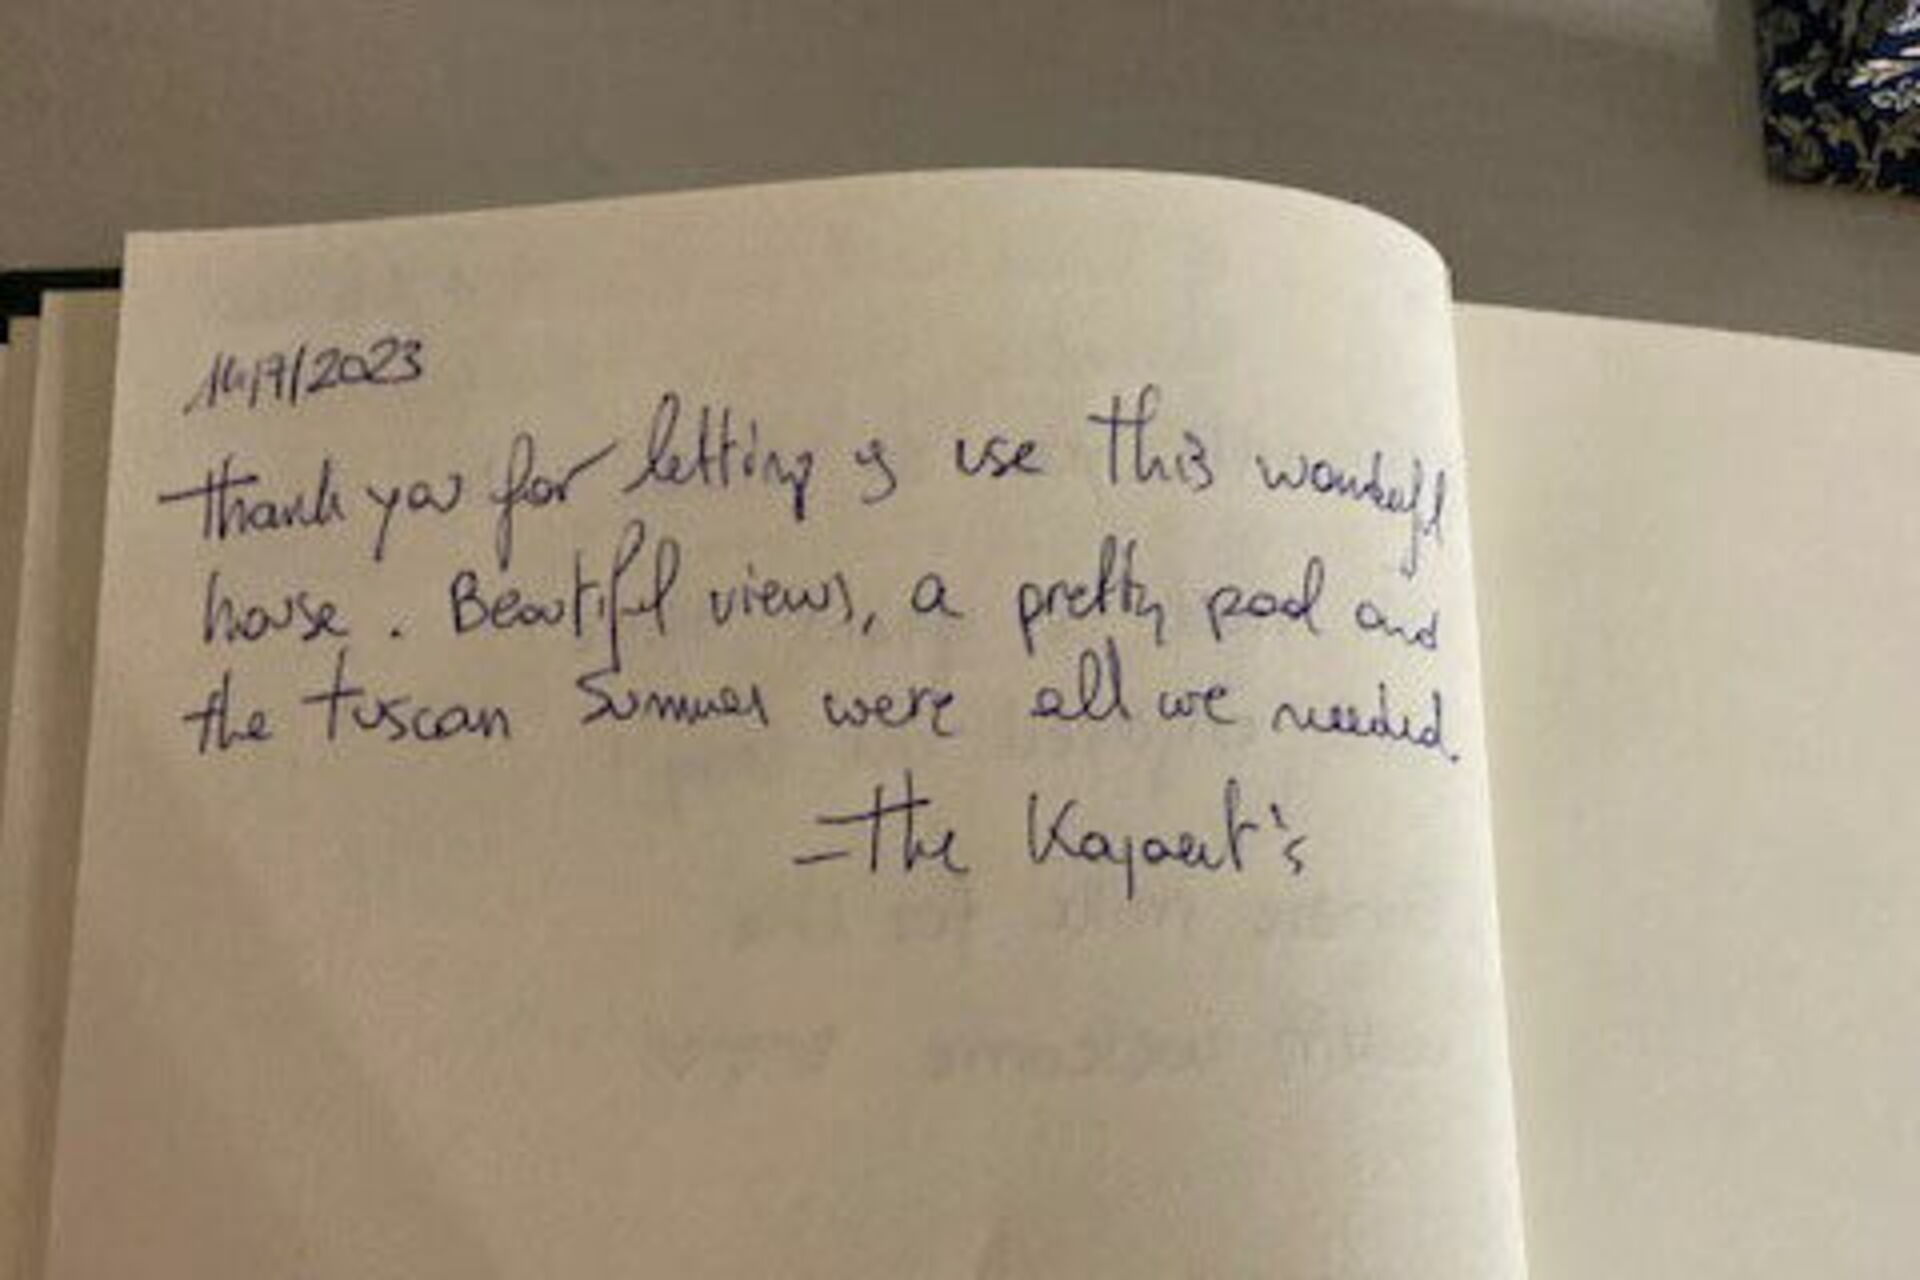 14/7/2023
Thank you for letting us use this wonderful
house. Beautiful views, a pretty pool and
the tuscan summer were all we needed.
- The Kajaert's